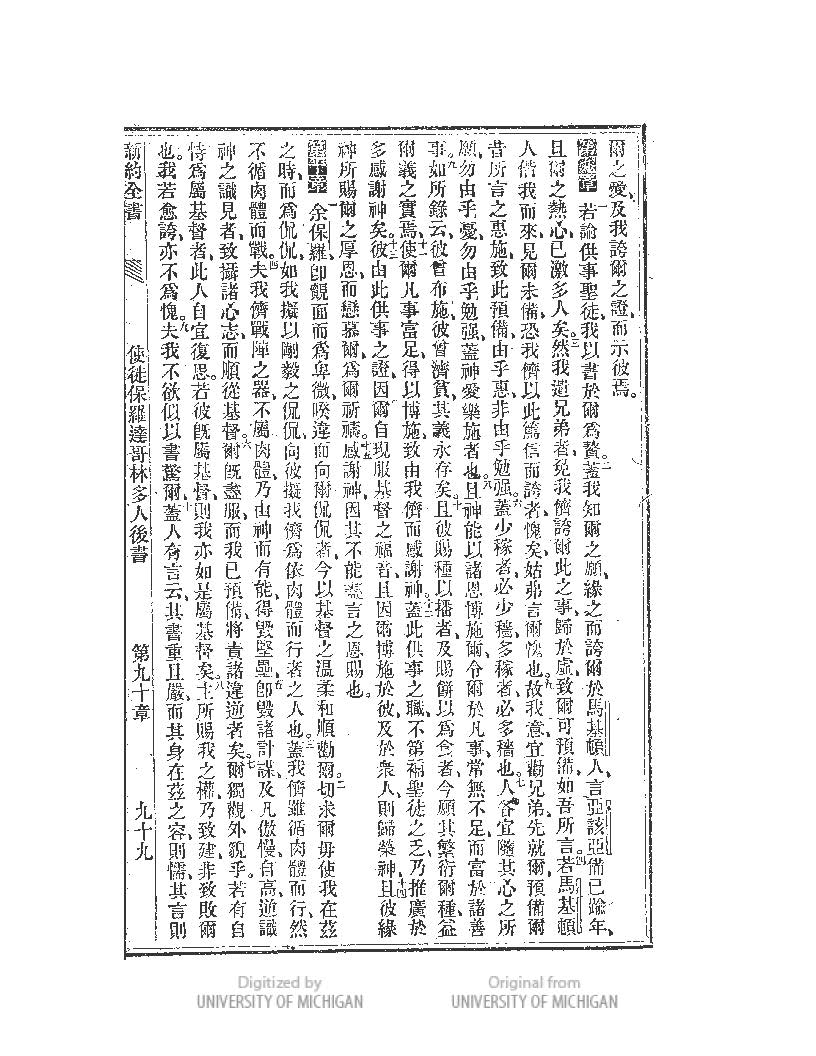 爾之愛、及我誇爾之證、而示彼焉。
第九章 一若論供事聖徒、我以書於爾爲贅、二蓋我知爾之願、緣之而誇爾於馬基頓人、言亞該亞備已踰年、
且爾之熱心、已激多人矣。三然我遣兄弟者、免我儕誇爾此之事、歸於虛、致爾可預備、如吾所言。四若馬基頓
人偕我而來、見爾未備、恐我儕以此篤信而誇者、愧矣、姑弗言爾愧也。五故我意、宜勸兄弟、先就爾、預備爾
昔所言之惠施、致此預備、由乎惠、非由乎勉强。六蓋少稼者、必少穡、多稼者、必多穡也。七人各宜隨其心之所
願、勿由乎憂、勿由乎勉强、蓋神愛樂施者也。八且神能以諸恩博施爾、令爾於凡事、常無不足、而富於諸善
事。九如所錄云、彼曾布施、彼曾濟貧、其義永存矣。十且彼賜種以播者、及賜餅以爲食者、今願其繁衍爾種、益
爾義之實焉、十一使爾凡事富足、得以博施、致由我儕而感謝神。十二蓋此供事之職、不第補聖徒之乏、乃推廣於
多感謝神矣。十三彼由此供事之證、因爾自現服基督之福音、且因爾博施於彼、及於衆人、則歸榮神、十四且彼緣
神所賜爾之厚恩、而戀慕爾、爲爾祈禱。十五感謝神、因其不能盡言之恩賜也。
第十章 一余保羅、卽覿面而爲卑微、暌違而向爾侃侃者、今以基督之溫柔和順勸爾。二切求爾毋使我在茲
之時、而爲侃侃、如我擬以剛毅之侃侃、向彼擬我儕爲依肉體而行者之人也。三蓋我儕雖循肉體而行、然
不循肉體而戰。四夫我儕戰陣之器、不屬肉體、乃由神而有能、得毀堅壘、五卽毀諸計謀、及凡傲慢、自高、逆識
神之識見者、致攝諸心志、而順從基督。六爾旣盡服、而我已預備、將責諸違逆者矣。七爾獨觀外貌乎。若有自
恃爲屬基督者、此人自宜復思。若彼旣屬基督、則我亦如是屬基督矣。八主所賜我之權、乃致建、非致敗爾
也。我若愈誇、亦不爲愧。九夫我不欲似以書驚爾、十蓋人有言云、其書重且嚴、而其身在茲之容、則懦、其言則
新約全書 使徒保羅達哥林多人後書 第九十章 九十九
Digitized by
UNIVERSITY OF MICHIGAN
Original from
UNIVERSITY OF MICHIGAN